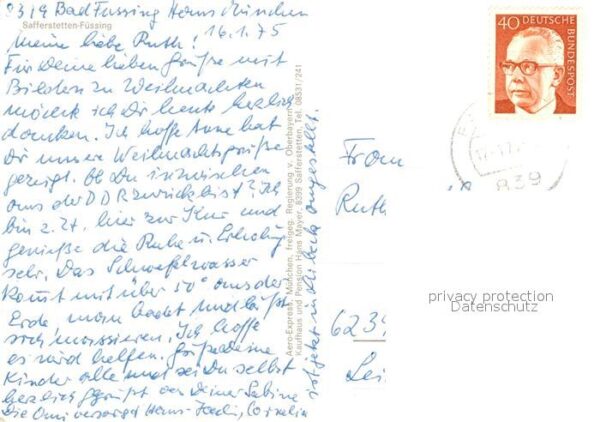 8319 Bad Füssing Haus München
Safferstetten-Füssing
16.1.75
Meine liebe Ruth!
Für Deine lieben Grüße mit
Bildern zu Weihnachten
möcht ich Dir heute herzlich
danken. Ich hoffe Anne hat
Dir unsere Weihnachtsgrüße
gezeigt. Ob Du inzwischen
aus der DDR zurück bist? Ich
bin z. Zt. hier zur Kur und
genieße die Ruhe u. Erholung
sehr. Das Schwefelwasser
kommt mit über 50° aus der
Erde, man badet und läßt
sich massieren. Ich hoffe
es wird helfen. Grüße deine
Kinder alle und sei Du selbst
herzlich gegrüßt von Deiner Sabine
Die Omi versorgt Hans- Cornelia
ist jetzt in angestellt.
Aero-Express, München, freigeg. Regierung v. Oberbayern
Kaufhaus und Pension Hans Mayer, 8399 Safferstetten, Tel. 08531/241
40 DEUTSCHE
BUNDESPOST
839
Frau
Ruth
6239
privacy protection
Datenschutz